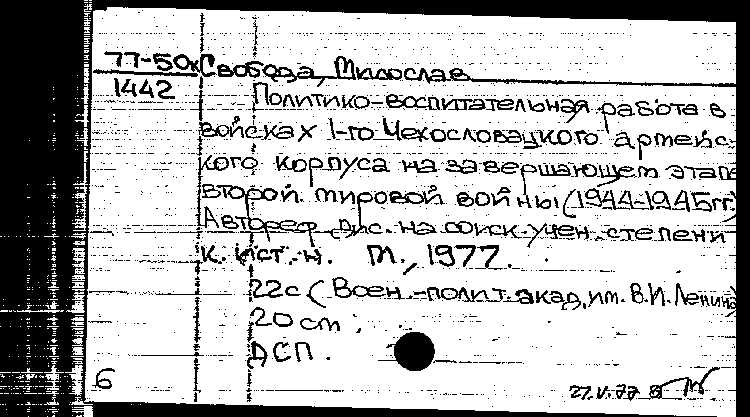 77-50к Свобода, Милослав
1442
Политико-воспитательная работа в
войсках 1-го Чехословацкого армейс-
кого корпуса на завершающем этапе
второй мировой войны (1944-1945гг)
Автореф. дис. на соиск. учен. степени
к. ист. н. М., 1977.
22с (Воен.-полит. акад. им. В.И. Ленина)
20 см.
ДСП.
6
27.V.77